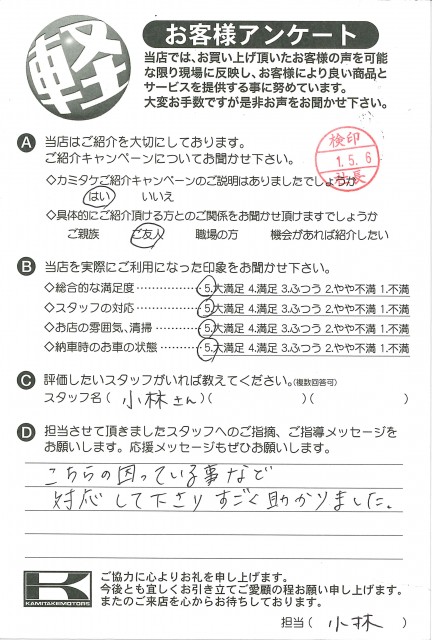 軽
お客様アンケート
当店では、お買い上げ頂いたお客様の声を可能
な限り現場に反映し、お客様により良い商品と
サービスを提供する事に努めています。
大変お手数ですが是非お声をお聞かせ下さい。
A 当店はご紹介を大切にしております。
ご紹介キャンペーンについてお聞かせ下さい。
検印
1.5.6
社長
◇カミタケご紹介キャンペーンのご説明はありましたでしょうか
はい いいえ
◇具体的にご紹介頂ける方とのご関係をお聞かせ頂けますでしょうか
ご親族 ご友人 職場の方 機会があれば紹介したい
B 当店を実際にご利用になった印象をお聞かせ下さい。
◇総合的な満足度 ……………… 5.大満足 4.満足 3.ふつう 2.やや不満 1.不満
◇スタッフの対応 ……………… 5.大満足 4.満足 3.ふつう 2.やや不満 1.不満
◇お店の雰囲気、清掃 ………… 5.大満足 4.満足 3.ふつう 2.やや不満 1.不満
◇納車時のお車の状態 ………… 5.大満足 4.満足 3.ふつう 2.やや不満 1.不満
C 評価したいスタッフがいれば教えてください。(複数回答可)
スタッフ名( 小林さん )( )( )
D 担当させて頂きましたスタッフへのご指摘、ご指導メッセージを
お願いします。応援メッセージもぜひお願いします。
こちらの困っている事など
対応して下さりすごく助かりました。
K
KAMITAKEMOTORS
ご協力に心よりお礼を申し上げます。
今後とも宜しくお引き立てご愛顧の程お願い申し上げます。
またのご来店を心からお待ちしております。
担当( 小林 )